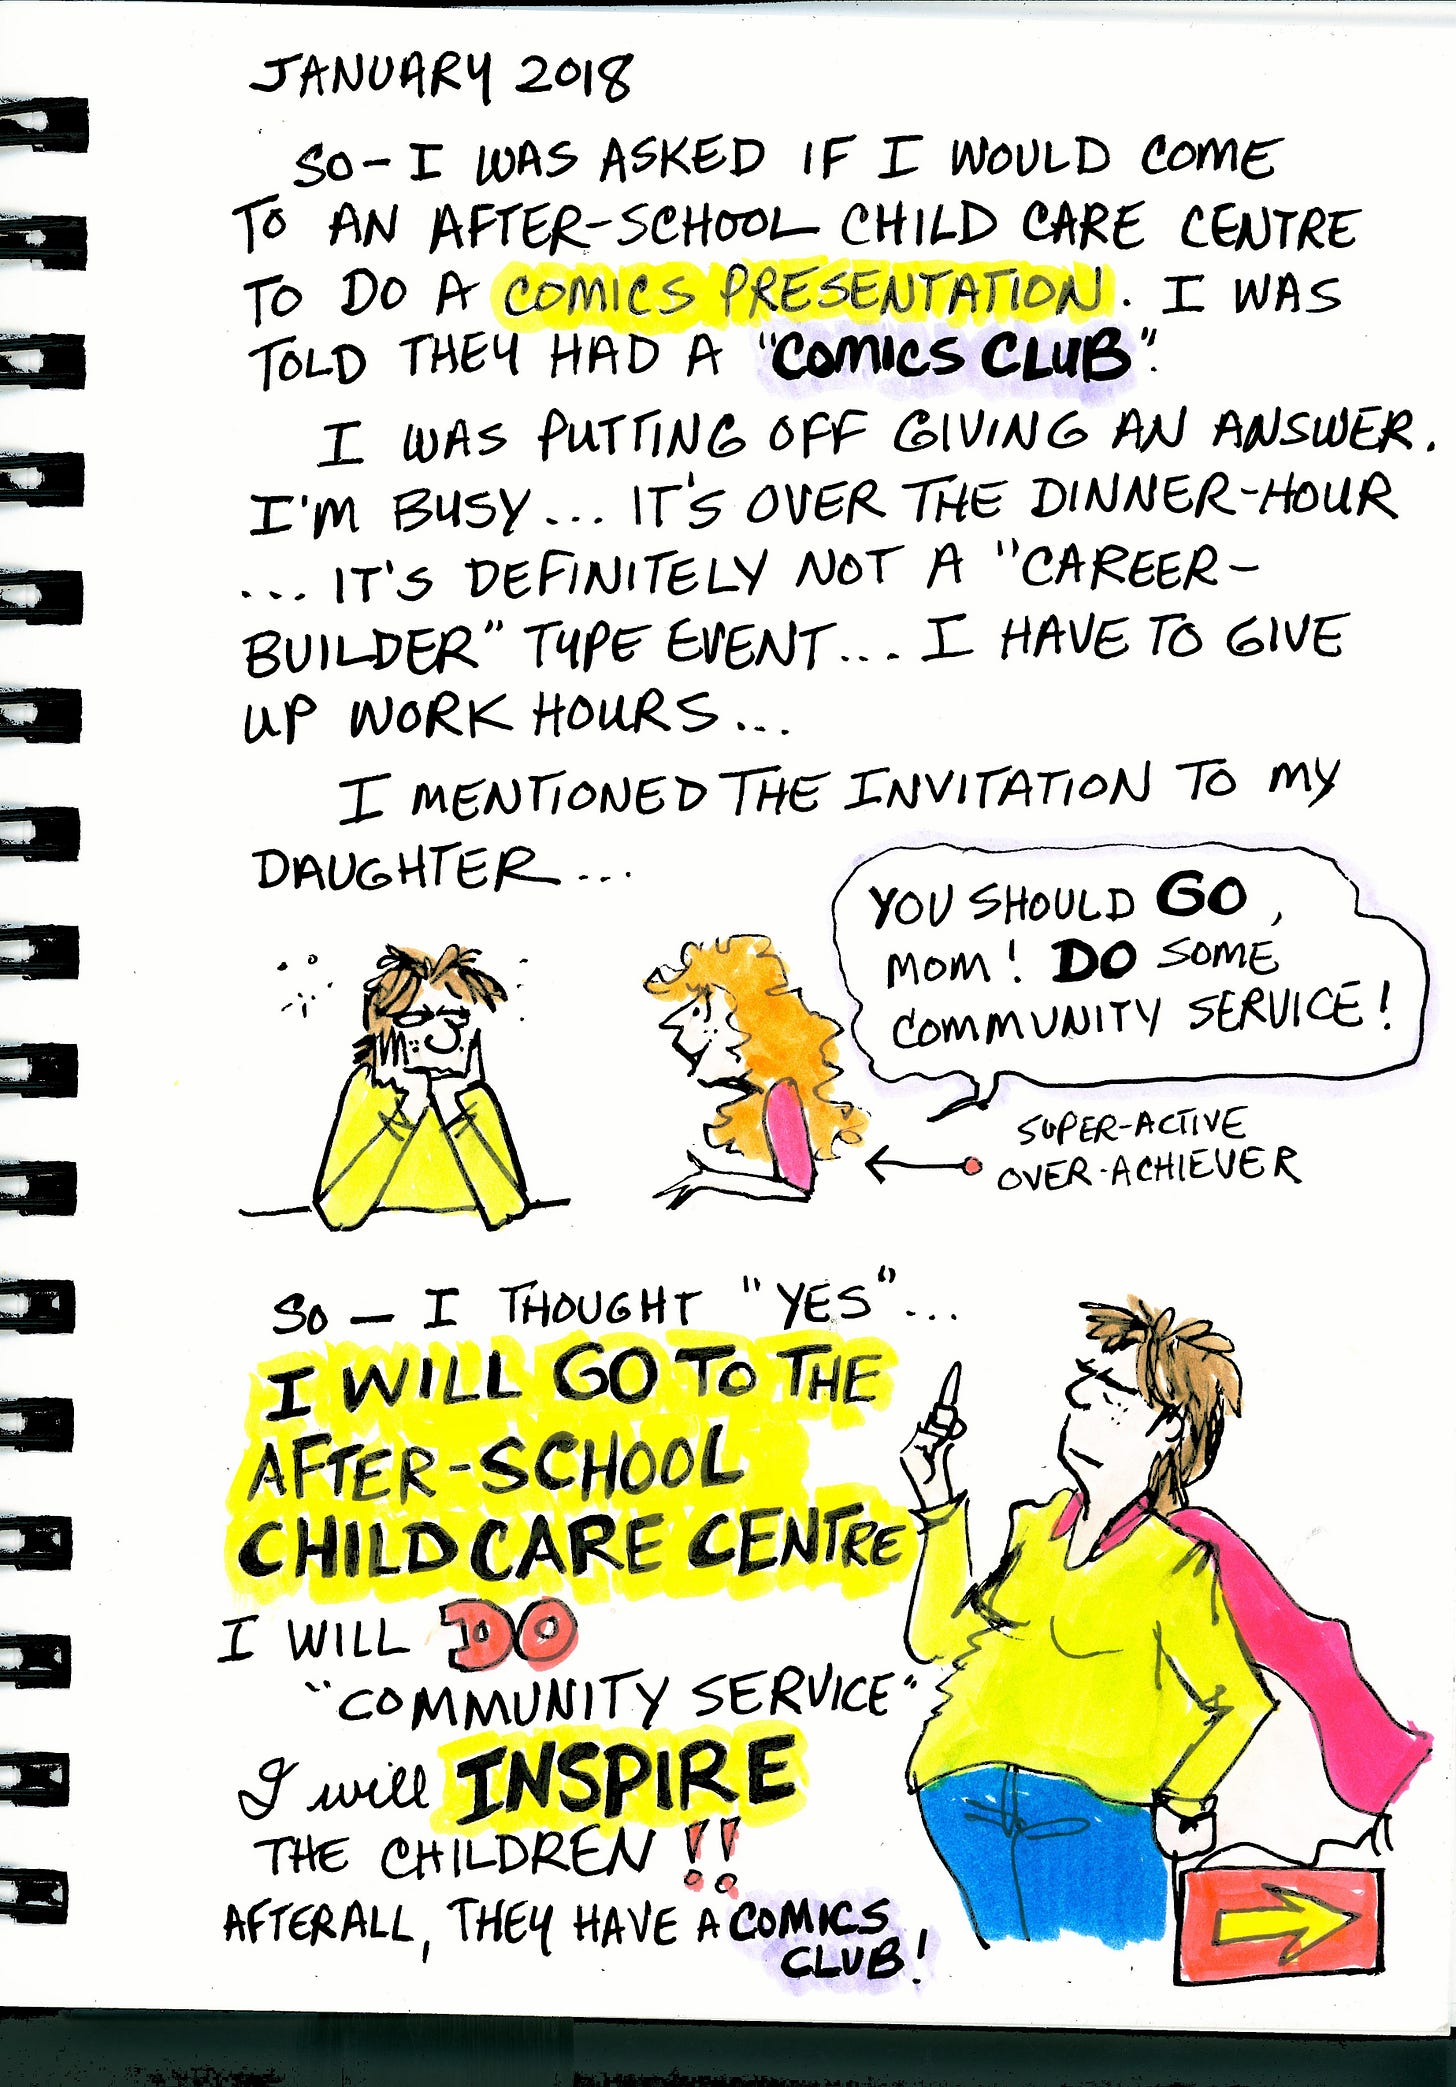 JANUARY 2018
SO - I WAS ASKED IF I WOULD COME
TO AN AFTER-SCHOOL CHILD CARE CENTRE
TO DO A COMICS PRESENTATION. I WAS
TOLD THEY HAD A "COMICS CLUB".
I WAS PUTTING OFF GIVING AN ANSWER.
I'M BUSY... IT'S OVER THE DINNER-HOUR
... IT'S DEFINITELY NOT A "CAREER-
BUILDER" TYPE EVENT... I HAVE TO GIVE
UP WORK HOURS...
I MENTIONED THE INVITATION TO MY
DAUGHTER...
YOU SHOULD GO,
MOM! DO SOME
COMMUNITY SERVICE!
SUPER-ACTIVE
OVER-ACHIEVER
SO — I THOUGHT "YES"...
I WILL GO TO THE
AFTER-SCHOOL
CHILD CARE CENTRE
I WILL DO
"COMMUNITY SERVICE"
I will INSPIRE
THE CHILDREN!!
AFTERALL, THEY HAVE A COMICS
CLUB!